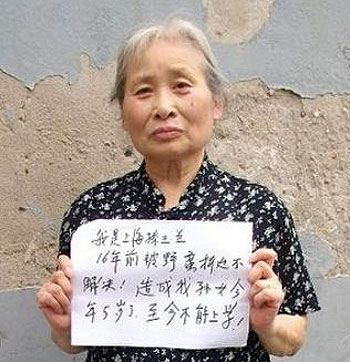 我是上海孫玉兰
16年前被野蛮拆迁不
解决！造成我孙女今
年5岁了.至今不能上学！